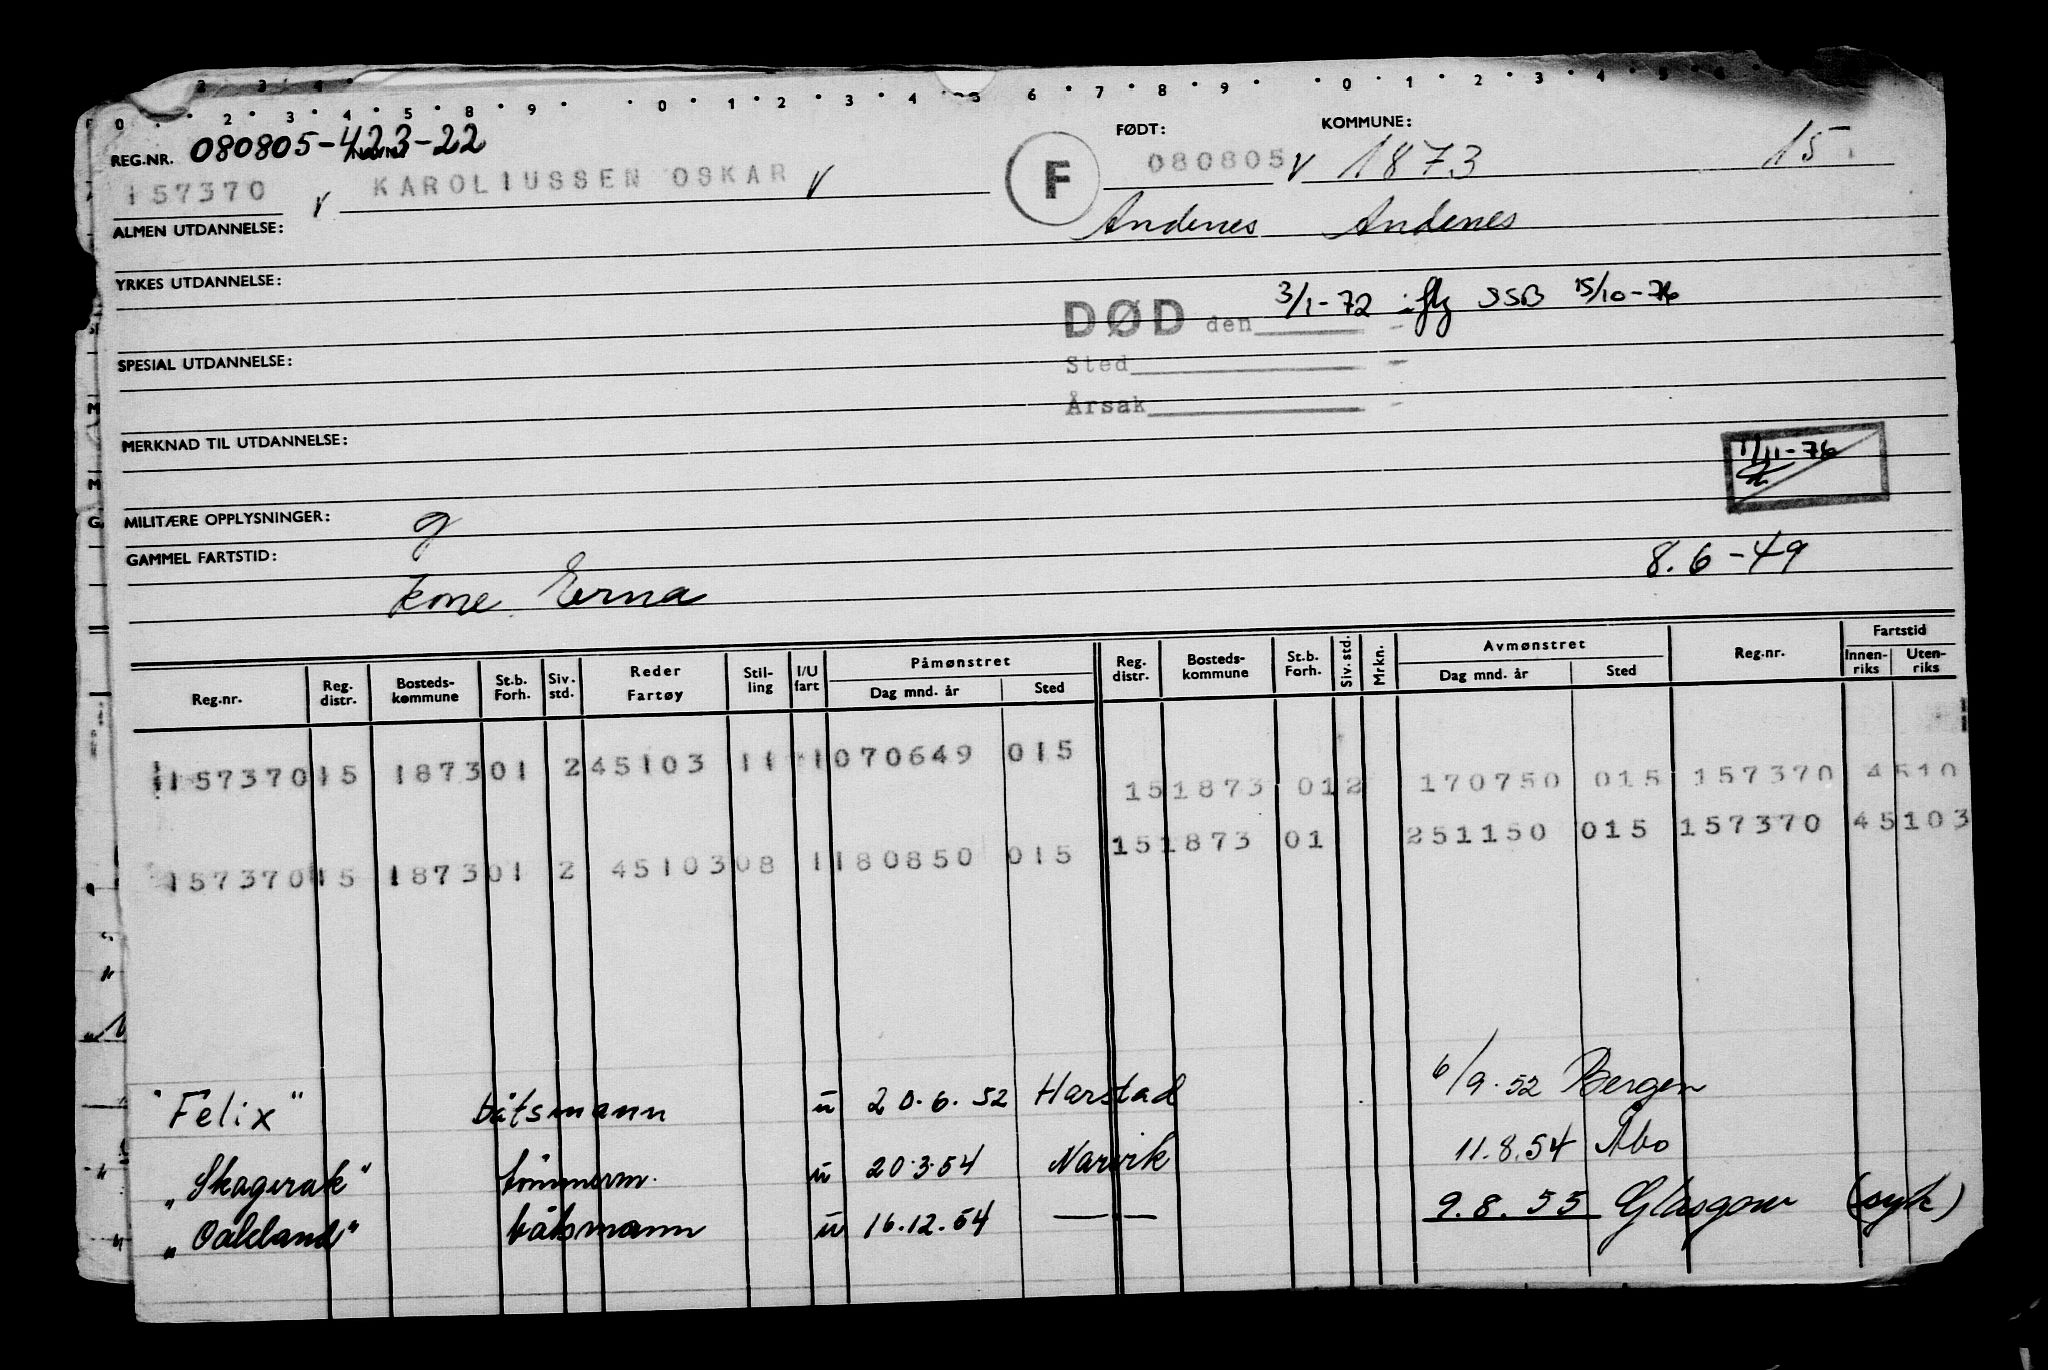 2 3 4
0 2 3 4 5 8 9 0 1 2 3 4 5 6 7 8 9 0 1 2 3 4 5 6
REG.NR. 080805-423-22 FØDT: KOMMUNE:
157370 v KAROLIUSSEN OSKAR v F 080805 v 1873 15
ALMEN UTDANNELSE: Andenes Andenes
YRKES UTDANNELSE:
DØD den 3/1-72 iflg SSB 15/10-76
SPESIAL UTDANNELSE: Sted
Årsak
MERKNAD TIL UTDANNELSE: 1/11-76
MILITÆRE OPPLYSNINGER: g
GAMMEL FARTSTID: 8.6-49
kone Erna
Reg.nr. Reg. distr. Bosteds-kommune St.b. Forh. Siv. std. Reder Fartøy Stil-ling I/U fart Påmønstret Dag mnd. år Sted Reg. distr. Bosteds-kommune St.b. Forh. Siv. std. Mrkn. Avmønstret Dag mnd. år Sted Reg.nr. Fartstid Innen-riks Uten-riks
157370 15 1873 01 2 45103 11 1 070649 015 15 1873 01 2 170750 015 157370 4510
157370 15 1873 01 2 45103 08 1 180850 015 15 1873 01 251150 015 157370 45103
"Felix" båtsmann u 20.6.52 Harstad 6/9.52 Bergen
"Skagerak" tömmerm. u 20.3.54 Narvik 11.8.54 Åbo
"Oakland" båtsmann u 16.12.54 —"— 9.8.55 Glasgow (syk)